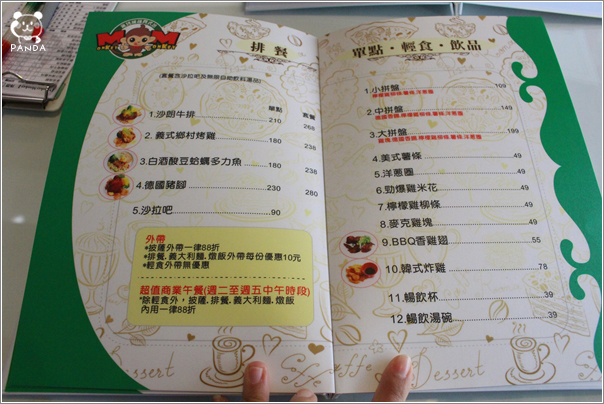 PANDA
MOM
排餐
(套餐含沙拉吧及無限自助飲料湯品)
單點 套餐
1.沙朗牛排 210 268
2.義式鄉村烤雞 180 238
3.白酒酸豆蛤蠣多力魚 180 238
4.德國豬腳 230 280
5.沙拉吧 90
外帶
*披薩外帶一律88折
*排餐,義大利麵,燉飯外帶每份優惠10元
*輕食外帶無優惠
超值商業午餐(週二至週五中午時段)
*除輕食外,披薩,排餐,義大利麵,燉飯
內用一律88折
單點・輕食・飲品
1.小拼盤 109
2.中拼盤 149
3.大拼盤 199
4.美式薯條 49
5.洋蔥圈 49
6.勁爆雞米花 49
7.檸檬雞柳條 49
8.麥克雞塊 49
9.BBQ香雞翅 55
10.韓式炸雞 78
11.暢飲杯 39
12.暢飲湯碗 39
Dessert
Coffee
Dessert